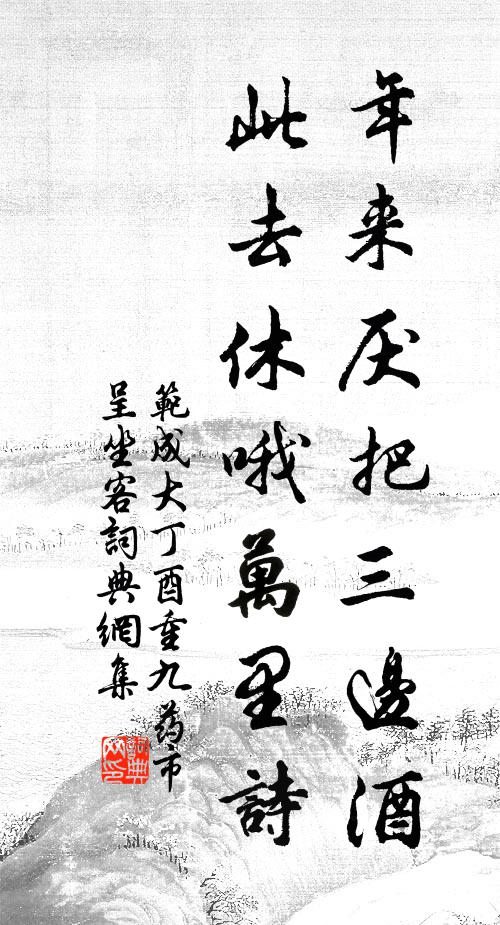 年来厌把三邊酒
此去休哦萬里詩
範成大丁酉重九药市
呈坐客詞典網集
詞典